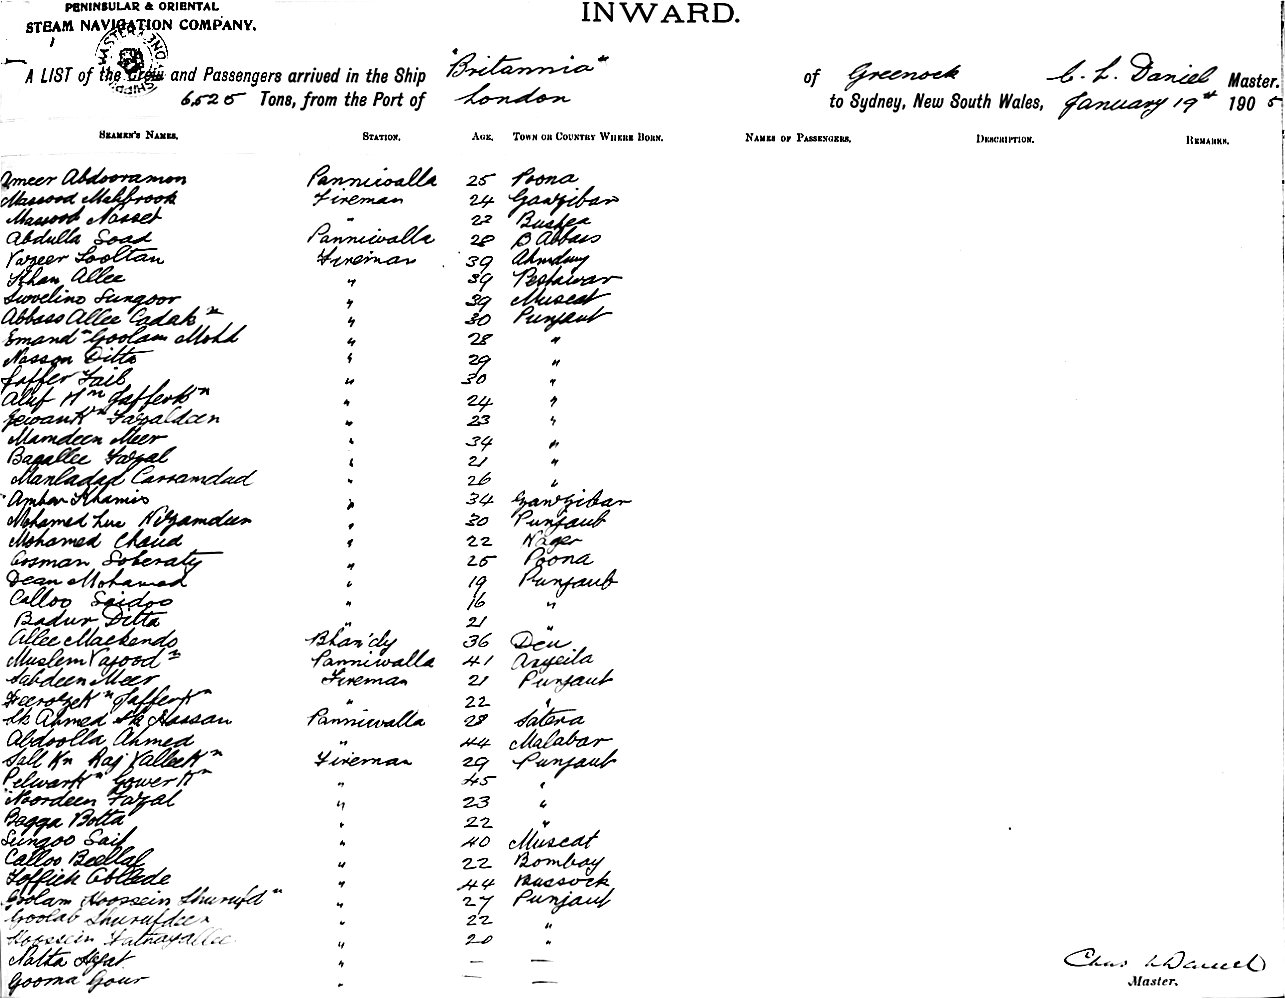 PENINSULAR & ORIENTAL
STEAM NAVIGATION COMPANY.
INWARD.
A LIST of the Crew and Passengers arrived in the Ship "Britannia" of Greenock C. L. Daniel Master.
6,525 Tons, from the Port of London to Sydney, New South Wales, January 19th 1905
SEAMEN'S NAMES. STATION. AGE. TOWN OR COUNTRY WHERE BORN. NAMES OF PASSENGERS. DESCRIPTION. REMARKS.
Ameer Abdooramon Panniwalla 25 Poona
Massood Mahbrook Fireman 24 Ganzibar
Massood Nasseb " 22
Abdulla Soad Panniwalla 28 B Abbas
Vazeer Sooltan Fireman 39
Khan Allee " 39 Peshawar
Sungoor " 39 Muscat
Abbass Allee Cadak " 30 Punjaub
Emand Goolam Mohd " 28 "
Nasson Ditta " 29 "
Jaffer " 30 "
Kn Jafferkn " 24 "
Kn Fazaldeen " 23 "
Mamdeen Meer " 34 "
Bagallee Fazal " 21 "
Manladad Carramdad " 26 "
Ambar Khamis " 34 Ganzibar
Mohamed Nizamdeen " 30 Punjaub
Mohamed Chaud " 22 Nager
Cosman Soberaty " 25 Poona
Dean Mohamed " 19 Punjaub
Calloo Saidoo " 16 "
Badur Ditta " 21 "
Allee Mackendo Bhandy 36 Deu
Muslem Panniwalla 41
Sabdeen Meer Fireman 21 Punjaub
Jafferkn " 22 "
Sk Ahmed Sk Hassan Panniwalla 28 Satera
Abdoolla Ahmed " 44 Malabar
Kn Raj Vallee Kn Fireman 29 Punjaub
Gower Kn " 45 "
Noordeen Fazal " 23 "
Bagga Botta " 22 "
Sungoo Saif " 40 Muscat
Calloo Beellal " 22 Bombay
Toffick " 44 Bussock
Goolam Hoossein " 27 Punjaub
Goolab Shurufdeen " 22 "
Hoossein " 20 "
Natha " — —
Gooma Gour " — —
Chas L Daniel
Master.